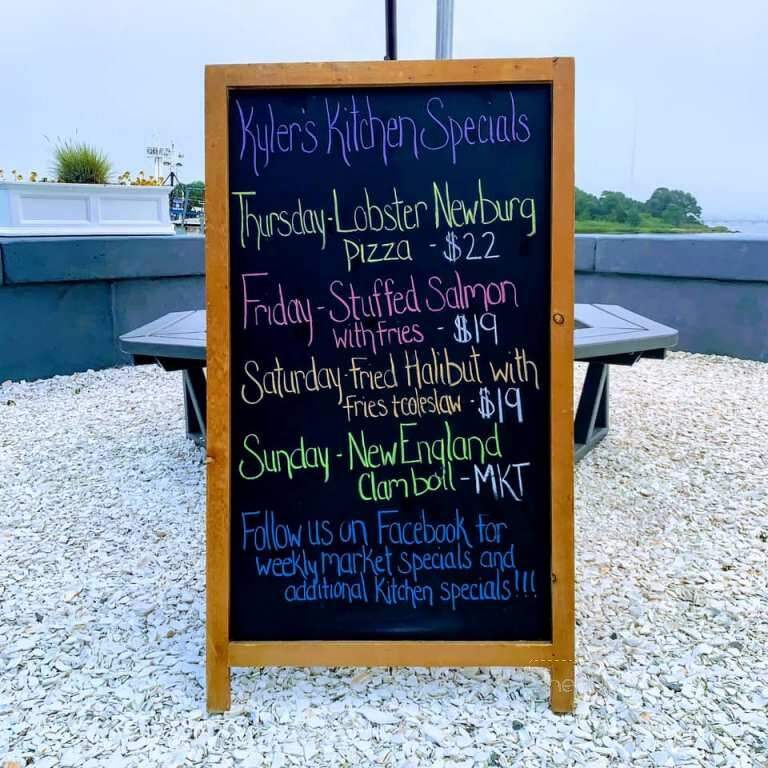 Kyler's Kitchen Specials
Thursday-Lobster Newburg
pizza - $22
Friday-Stuffed Salmon
with fries - $19
Saturday-Fried Halibut with
fries + coleslaw - $19
Sunday-New England
Clam boil - MKT
Follow us on Facebook for
weekly market specials and
additional Kitchen specials!!!